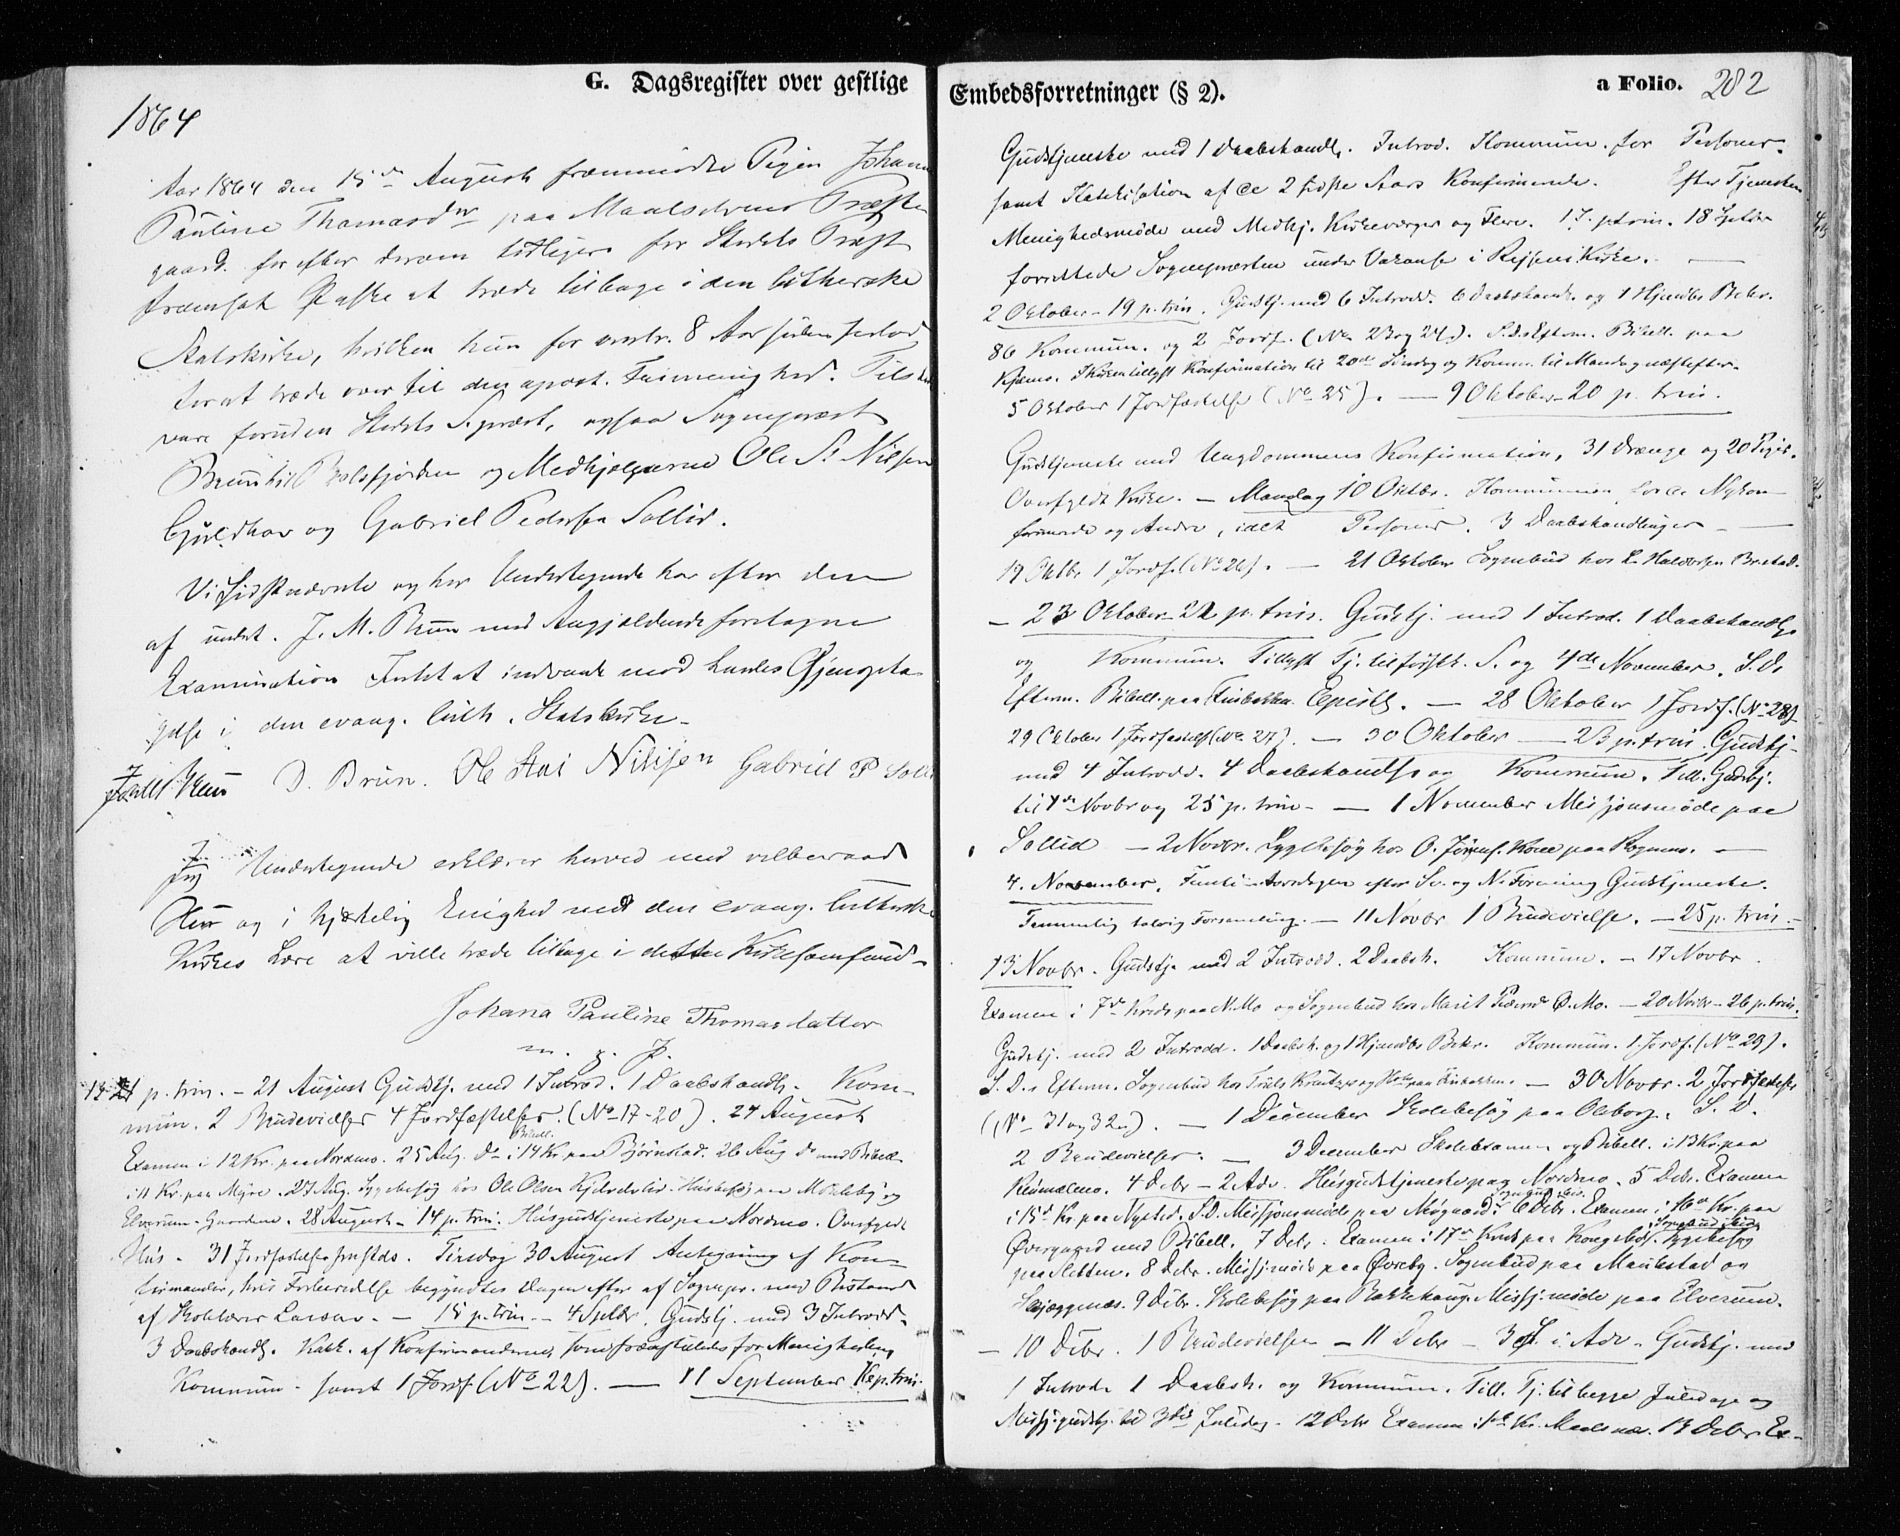 G. Dagsregister over gestlige
1864
Aar 1864 den 15de August fremmødte Pigen Johana
Pauline Thomasdtr paa Maalselvens Præste
gaard for efter derom tidligere for Stedets Præst
fremsat Ønske at træde tilbage i den lutherske
Statskirke, hvilken hun for omtr. 8 Aar siden forlod
for at træde over til den apost. Frimenighed. Tilstede
vare foruden Stedets S.præst, ogsaa Sognepræst
Brun til Balsfjorden og Medhjælperne Ole St. Nilsen
Guldhav og Gabriel Pedersen Sollid.
Vi sidstnævnte og her Undertegnede har efter den
af undert. J. M. Brun med Angjældende foretagne
Examination Intet at indvende mod hendes Gjenopta
gelse i den evang. luth. Statskirke.
D. Brun. Ole Stai Nilsen Gabriel P Solli
Jeg Undertegnede erklærer herved med velberaad
Hu og i hjertelig Enighed med den evang. lutherske
Kirkes Lære at ville træde tilbage i dette Kirkesamfund.
Johana Pauline Thomasdatter
m. f. P.
13 p. trin. – 21 August Gudstj. med 1 Introd. 1 Daabshandl. Kom-
mun. 2 Brudevielser 4 Jordfæstelser. (No 17-20). 24 August
Examen i 12 Kr. paa Nordmo. 25 Aug. Do i 14 Kr paa Bjørnstad. 26 Aug Do med Bibell.
i 11 Kr. paa Myre. 27 Aug. Sygebesøg hos Ole Olsen Husbesøg paa og
Elverum-Gaardene. 28 August – 14 p. trin. Husgudstjeneste paa Nordmo. Overfyldt
Hus. 31 Jordfæstelse Tirsdag 30 August Antegning af Kon-
firmander, hvis Forberedelse begyndtes Dagen efter af Sognepr. med Bistand
af Skolelærer Larsen. – 15 p. trin. – 4 Septbr. Gudstj. med 3 Introd.
3 Daabshandl. Kat. af Konfirmanderne, som fremstilledes for Menigheden,
Kommun. samt 1 Jordf. (No 22). — 11 September 16 p. trin.
Embedsforretninger (§ 2).
a Folio. 282
Gudstjeneste med 1 Daabshandl. Introd. Kommun. for Personer.
samt Katekisation af de 2 sidste Aars Konfirmerede. Efter Tjenesten
Menighedsmøde med Medhj. Kirkeværger og Flere. 17 p. trin. 18 Septbr
forrettede Sognepræsten under Vakanse i Kirke. —
2 Oktober – 19 p. trin. Gudstj. med 6 Introdd. 6 Daabshandl. og 1 Hjemdbs Bekr.
86 Kommun. og 2 Jordf. (No 23 og 24). S. Ds Eftrm. Bibell. paa
tillyst Konfirmation til 20de Søndag og Komm. til Mandag næstefter.
5 Oktober 1 Jordfæstelse (No 25). — 9 Oktober – 20 p. trin.
Gudstjeneste med Ungdommens Konfirmation, 31 Drenge og 20 Piger.
Overfyldt Kirke. – Mandag 10 Oktbr. Kommunion for de Nykon-
firmerede og Andre, ialt Personer. 3 Daabshandlinger —
19 Oktbr 1 Jordf. (No 26). — 21 Oktober Sognebud hos L. Halvorsen
– 23 Oktober – 22 p. trin. Gudstj. med 1 Introd. 1 Daabshandlg.
og Kommun. Tillyst Tj. til førstk. S. og 4de November. S. Ds
Efterm. Bibell. paa — 28 Oktober 1 Jordf. (No 28)
29 Oktober 1 Jordfæstelse (No 27). — 30 Oktober — 23 p. trin. Gudstj.
med 4 Introdd. 4 Daabshandl. og Kommun. Till. Gudstj.
til 4de Novbr og 25 p. trin. — 1 November Missjonsmøde paa
Sollid — 2 Novbr. Sygebesøg hos O. Kone paa —
4. November. Femti-Aarsdagen efter Sv. og N. Forening Gudstjeneste.
Temmelig talrig Forsamling. – 11 Novbr 1 Brudevielse. – 25 p. trin. –
13 Novbr. Gudstj. med 2 Introdd. 2 Daabsh. Kommun. – 17 Novbr
Examen i 7de Kreds paa N. Mo og Sognebud hos Marit Ø. Mo. – 20 Novbr – 26 p. trin.
Gudstj. med 2 Introdd. 1 Daabsh. og 1 Hjemdbs Bekr. Kommun. 1 Jordf. (No 29).
S. Ds Efterm. Sognebud hos — 30 Novbr. 2 Jordfæstelser
(No 31 og 32). — 1 December Skolebesøg paa Oleborg. S. D.
2 Brudevielser. — 3 December Skoleexamen og Bibell. i 13 Kr. paa
4 Debr – 2 Adv. Husgudstjeneste paa Nordmo. 5 Debr. Examen
i 15de Kr. paa Nysted. S. D. Missjonsmøde paa 6 Debr. Examen i 16de Kr. paa
Øvergaard med Bibell. 7 Debr. Examen i 17de Kreds paa Sygebesøg
paa Sletten. 8 Debr. Missj.møde paa Øvreby. Sognebud paa og
Skjæggenæs. 9 Debr. Skolebesøg paa Bakkehaug. Missj.møde paa Elverum.
– 10 Debr. 1 Brudevielse – 11 Debr – 3 S. i Adv – Gudstj. med
1 Introd. 1 Daabsh. og Kommun. Till. Tj. til begge Juledage og
Missj.gudstj. til 3die Juledag – 12 Debr Examen i 1ste Kr. 13 Debr. Ex-